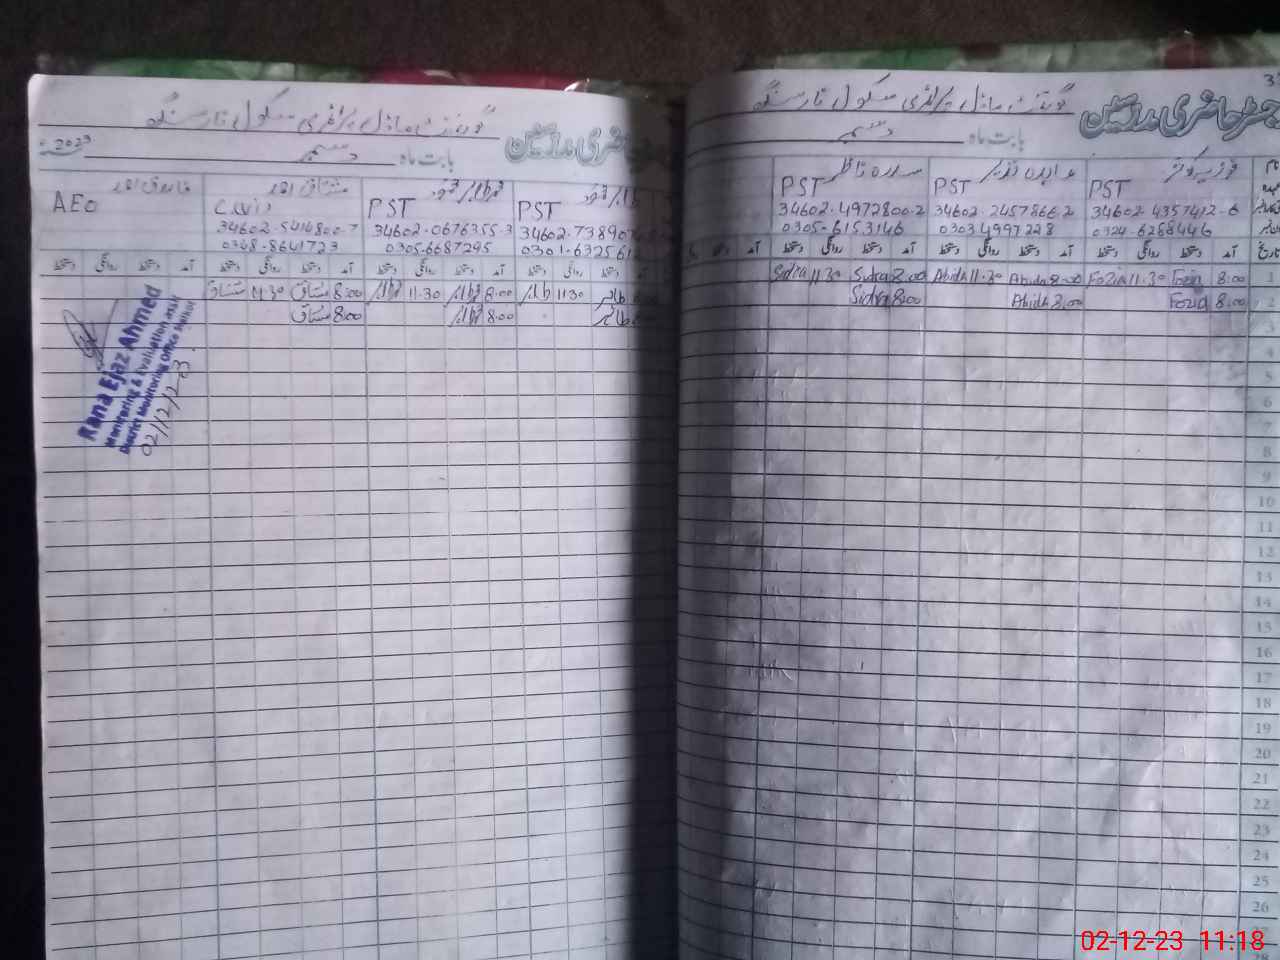 گورنمنٹ ماڈل پرائمری سکول نارسنگ
حاضری مدرسین
بابت ماہ دسمبر 2023
فاروق احمد
AEO
مشتاق احمد
34602-5416800-7
0348-8641723
PST
34602-0676355-3
0305-6687295
PST
34602-7389
0301-63256
آمد دستخط روانگی دستخط آمد دستخط روانگی دستخط آمد دستخط روانگی دستخط
8:00 مشتاق 11:30 مشتاق
8:00 11:30
11:30
8:00 مشتاق
8:00
Rana Ejaz Ahmed
Monitoring & Evaluation Asstt
District Monitoring Office
02/12/23
3
گورنمنٹ ماڈل پرائمری سکول نارسنگ
رجسٹر حاضری مدرسین
بابت ماہ دسمبر
فوزیہ کوثر
PST
34602-4357412-6
0324-6268446
عابدہ نذیر
PST
34602-2457866-2
03034997228
سدرہ ناظم
PST
34602-4972800-2
0305-6153146
آمد دستخط روانگی دستخط آمد دستخط روانگی دستخط آمد دستخط روانگی دستخط آمد
1 8:00 Fozia 11:30 Fozia
8:00 Abida 11:30 Abida
8:00 Sidra 11:30 Sidra
2 8:00 Fozia
8:00 Abida
8:00 Sidra
3
4
5
6
7
8
9
10
11
12
13
14
15
16
17
18
19
20
21
22
23
24
25
26
27
28
02-12-23 11:18